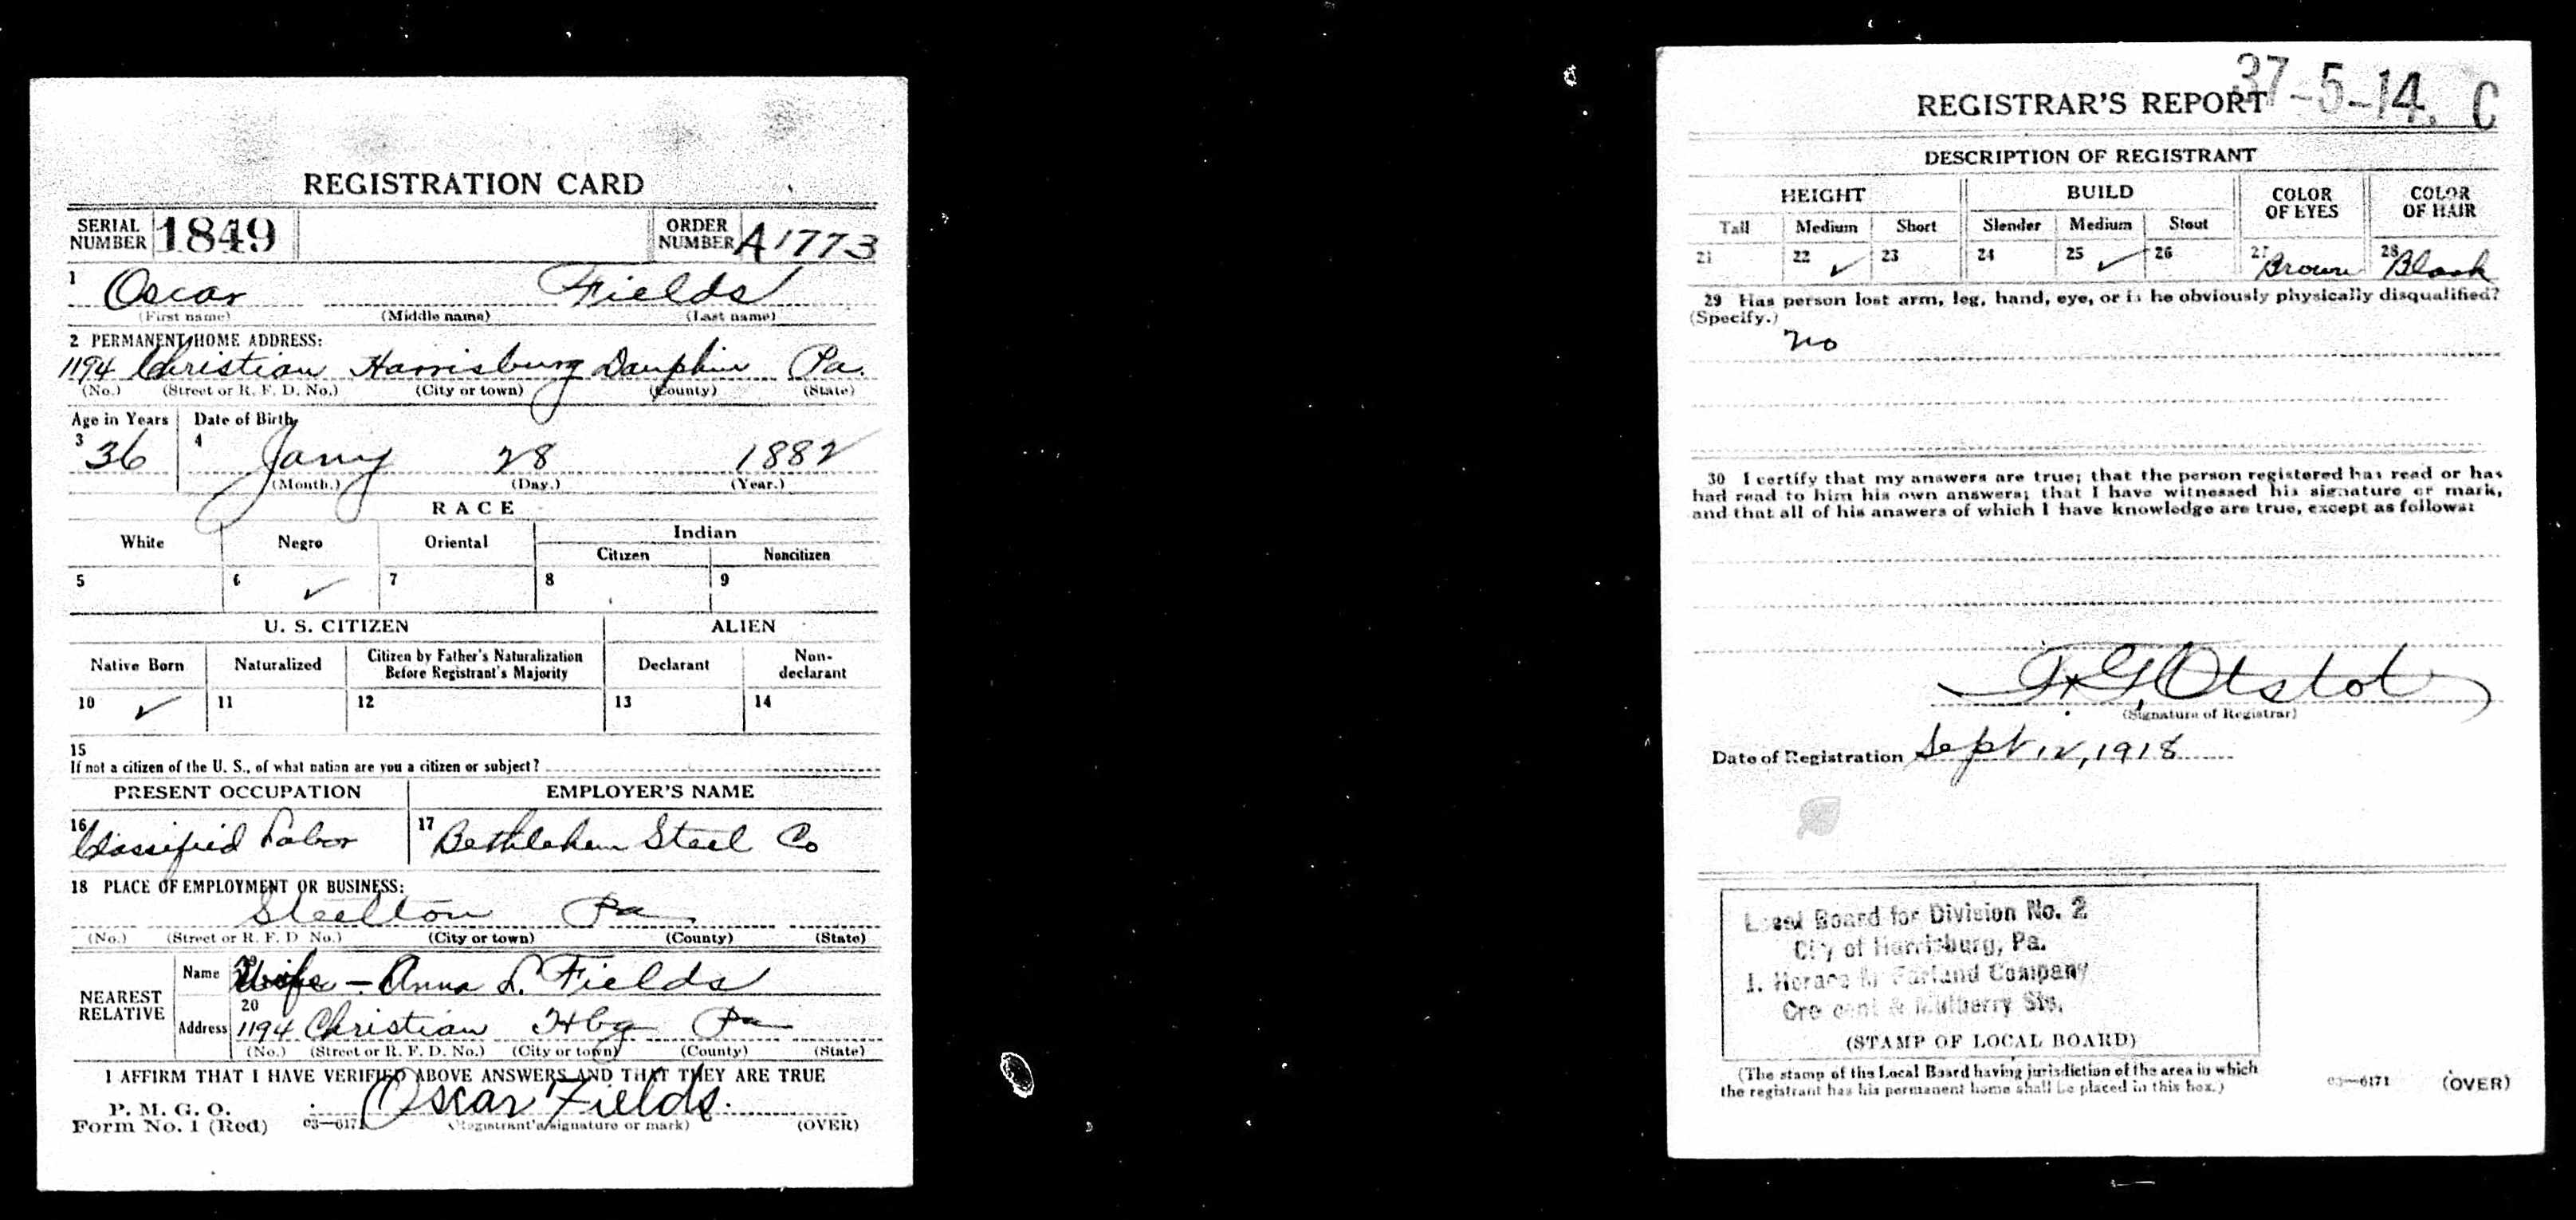 REGISTRATION CARD
SERIAL NUMBER 1849 ORDER NUMBER A1773
1 Oscar Fields
(First name) (Middle name) (Last name)
2 PERMANENT HOME ADDRESS:
1194 Christian Harrisburg Dauphin Pa.
(No.) (Street or R. F. D. No.) (City or town) (County) (State)
Age in Years Date of Birth
3 36 4 Jany 28 1882
(Month.) (Day.) (Year.)
RACE
White Negro Oriental Indian
Citizen Noncitizen
5 6 ✓ 7 8 9
U. S. CITIZEN ALIEN
Native Born Naturalized Citizen by Father's Naturalization Before Registrant's Majority Declarant Non-declarant
10 ✓ 11 12 13 14
15
If not a citizen of the U. S., of what nation are you a citizen or subject?
PRESENT OCCUPATION EMPLOYER'S NAME
16 Classified Labor 17 Bethlehem Steel Co
18 PLACE OF EMPLOYMENT OR BUSINESS:
Steelton Pa
(No.) (Street or R. F. D No.) (City or town) (County) (State)
NEAREST RELATIVE
Name 19 Wife - Anna L. Fields
20
Address 1194 Christian Hbg Pa
(No.) (Street or R. F. D. No.) (City or town) (County) (State)
I AFFIRM THAT I HAVE VERIFIED ABOVE ANSWERS AND THAT THEY ARE TRUE
P. M. G. O.
Form No. 1 (Red) 03—6171 Oscar Fields.
(Registrant's signature or mark) (OVER)
37-5-14. C
REGISTRAR'S REPORT
DESCRIPTION OF REGISTRANT
HEIGHT BUILD COLOR OF EYES COLOR OF HAIR
Tall Medium Short Slender Medium Stout
21 22 ✓ 23 24 25 ✓ 26 27 Brown 28 Black
29 Has person lost arm, leg, hand, eye, or is he obviously physically disqualified?
(Specify.)
no
30 I certify that my answers are true; that the person registered has read or has
had read to him his own answers; that I have witnessed his signature or mark,
and that all of his answers of which I have knowledge are true, except as follows:
(Signature of Registrar)
Date of Registration Sept 12, 1918
Local Board for Division No. 2
City of Harrisburg, Pa.
J. Horace McFarland Company
Crescent & Mulberry Sts.
(STAMP OF LOCAL BOARD)
(The stamp of the Local Board having jurisdiction of the area in which
the registrant has his permanent home shall be placed in this box.)
03—6171 (OVER)